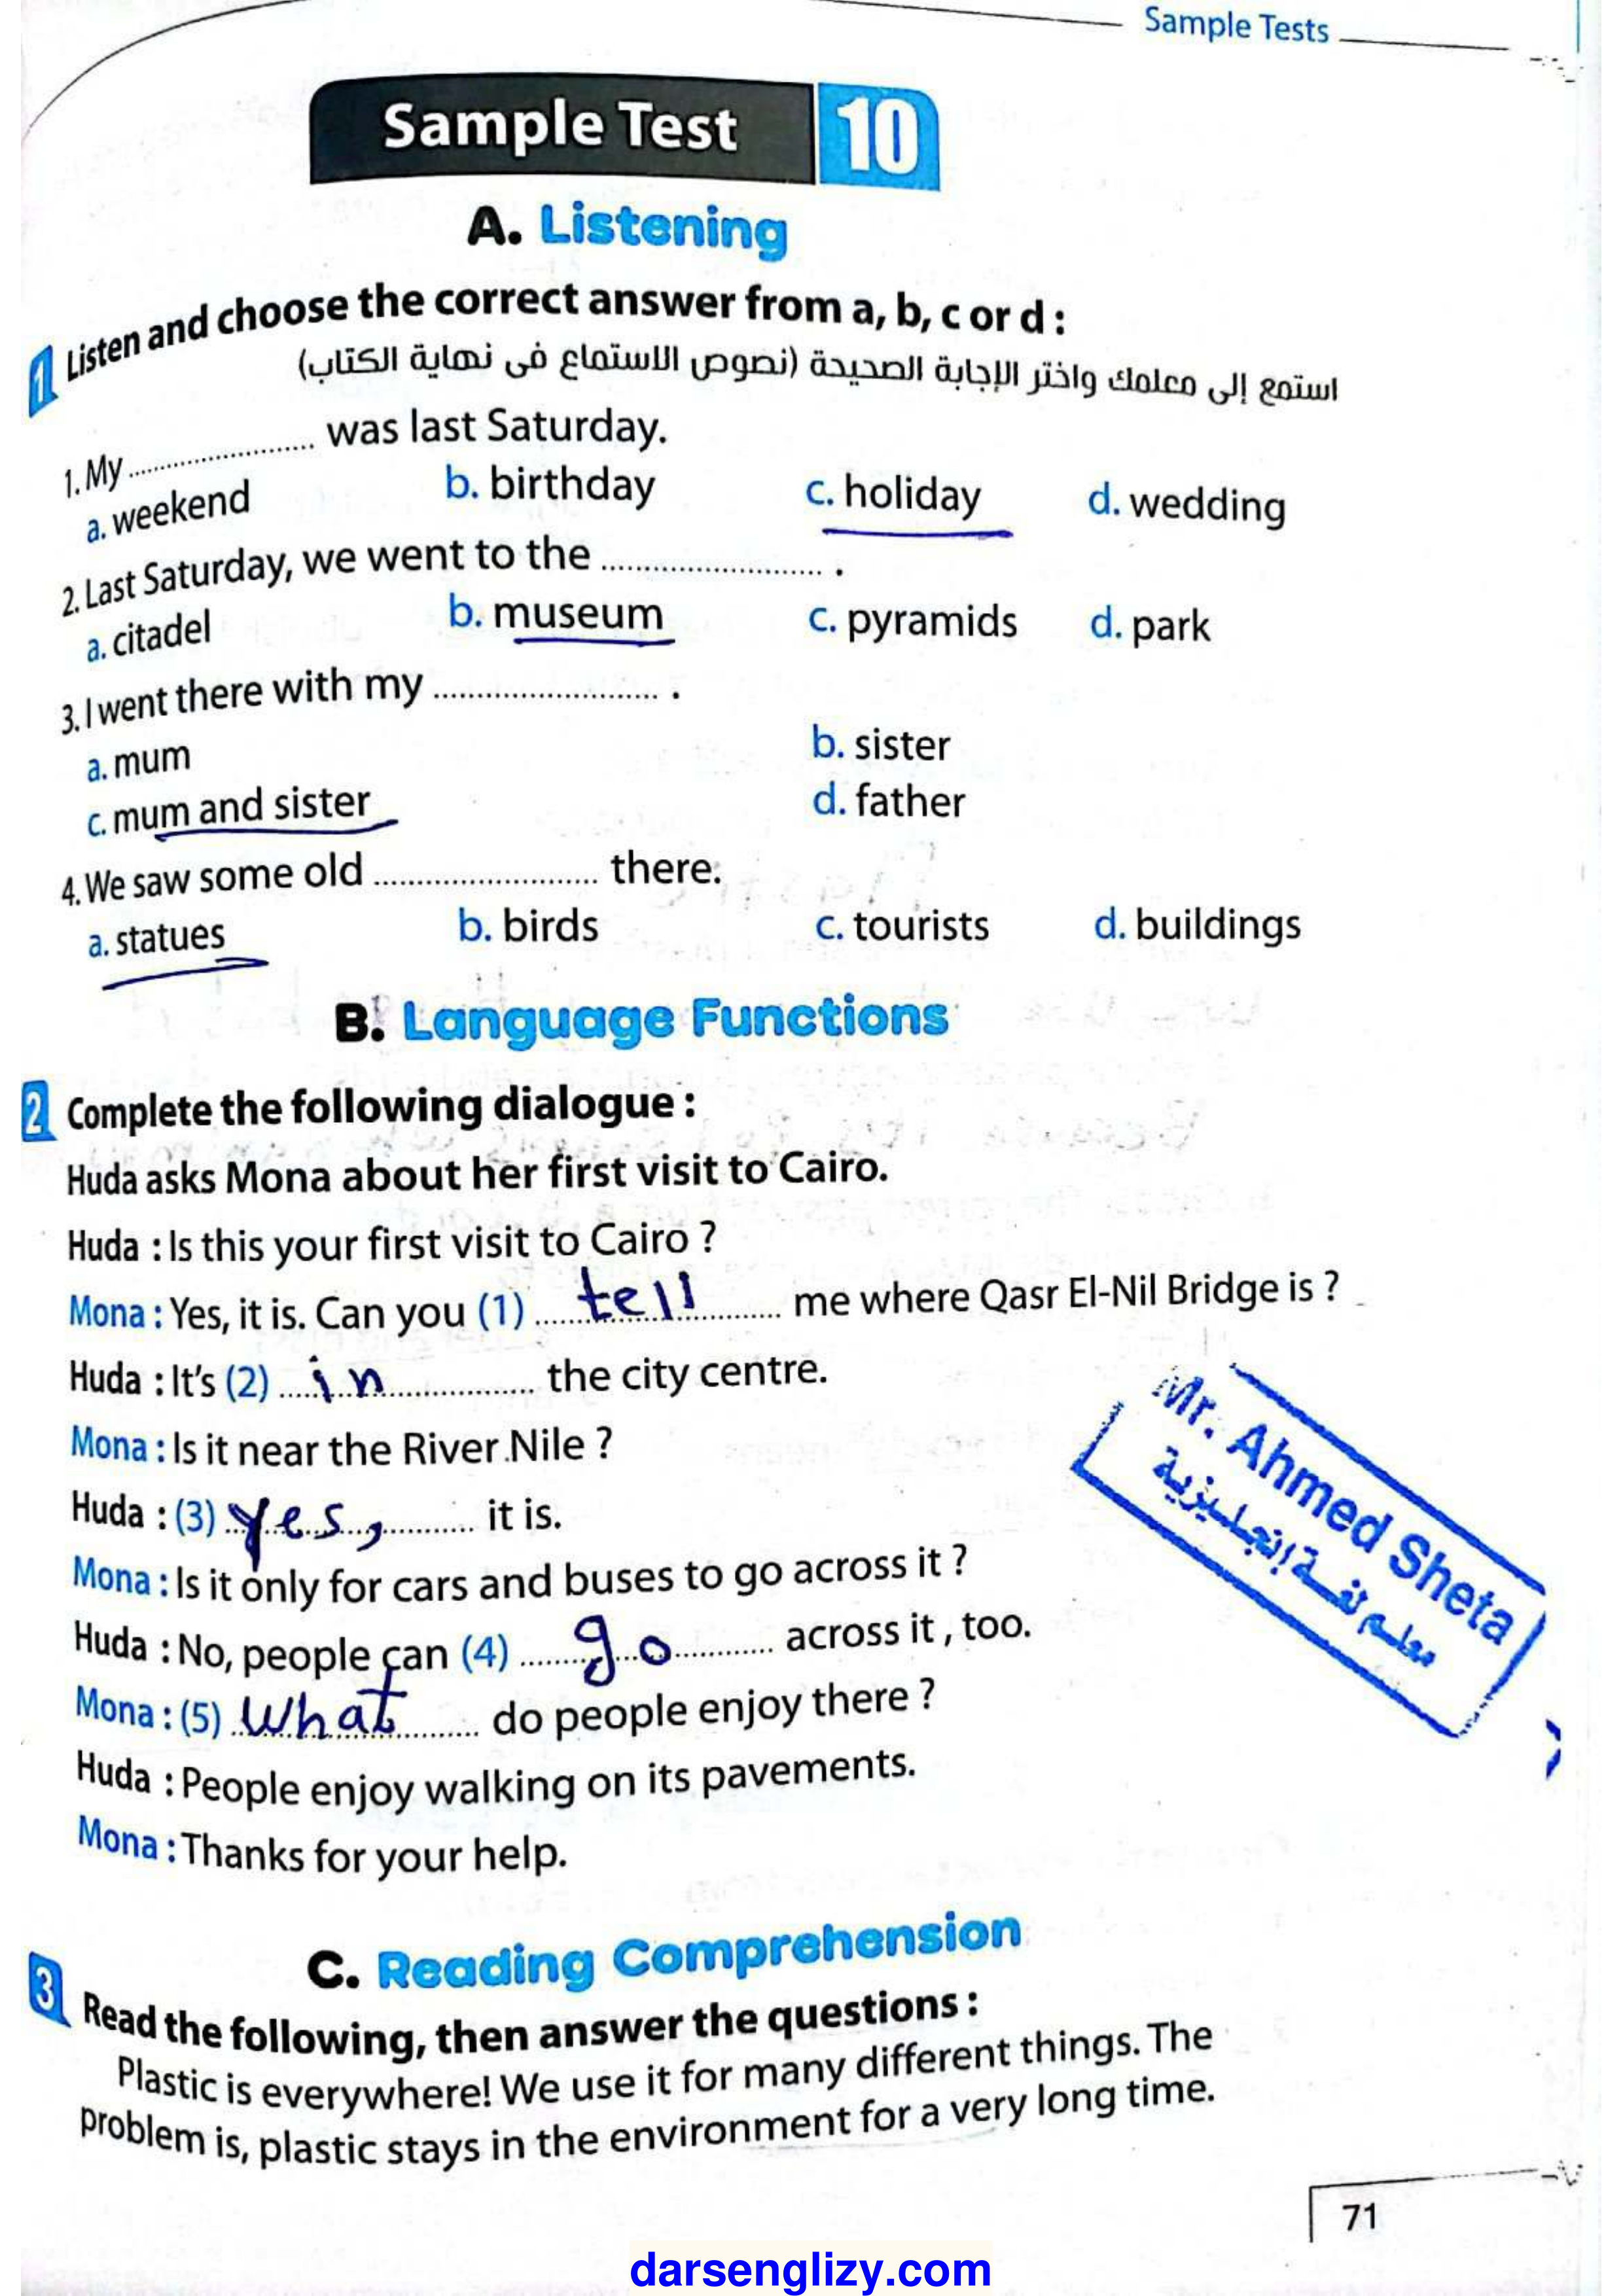 Sample Tests
Sample Test 10
A. Listening
1 Listen and choose the correct answer from a, b, c or d :
استمع إلى معلمك واختر الإجابة الصحيحة (نصوص الاستماع فى نهاية الكتاب)
1. My ........................ was last Saturday.
a. weekend b. birthday c. holiday d. wedding
2. Last Saturday, we went to the ........................ .
a. citadel b. museum c. pyramids d. park
3. I went there with my ........................ .
a. mum b. sister
c. mum and sister d. father
4. We saw some old ........................ there.
a. statues b. birds c. tourists d. buildings
B. Language Functions
2 Complete the following dialogue :
Huda asks Mona about her first visit to Cairo.
Huda : Is this your first visit to Cairo ?
Mona : Yes, it is. Can you (1) tell me where Qasr El-Nil Bridge is ?
Huda : It's (2) in the city centre.
Mona : Is it near the River Nile ?
Huda : (3) Yes, it is.
Mona : Is it only for cars and buses to go across it ?
Huda : No, people can (4) go across it , too.
Mona : (5) What do people enjoy there ?
Huda : People enjoy walking on its pavements.
Mona : Thanks for your help.
Mr. Ahmed Sheta
معلم لغة إنجليزية
C. Reading Comprehension
3 Read the following, then answer the questions :
Plastic is everywhere! We use it for many different things. The
problem is, plastic stays in the environment for a very long time.
71
darsenglizy.com